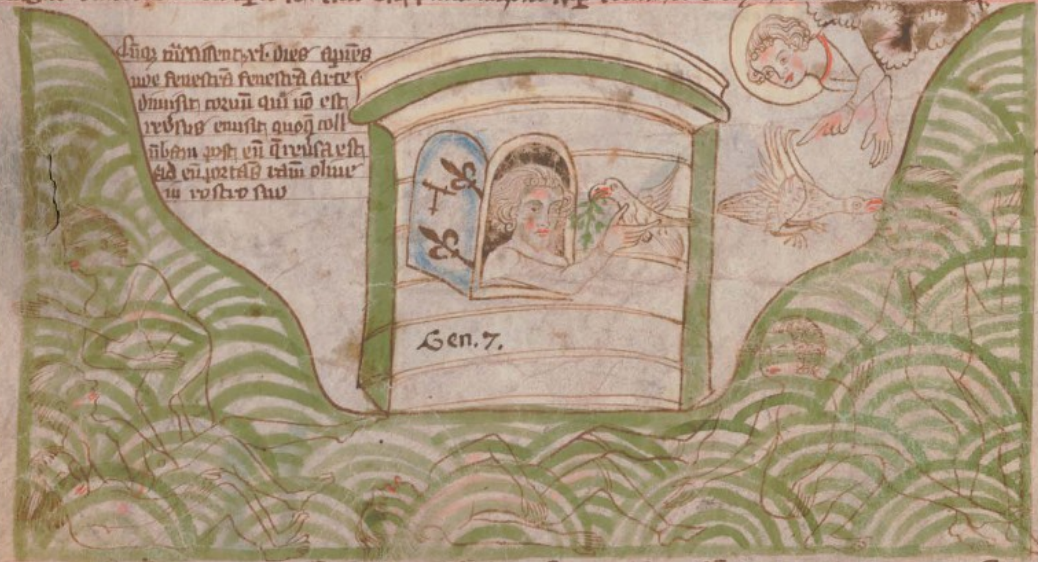 Cūqꝫ trāsissent xl. dies apiēs
noe fenestrā fenestrā arce
dimisit coruū qui nō est
reūsus emisit quoqꝫ coll
ūbam post eū q̄ reūsa est
ad eū portās ramū oliue
in rostro suo
Gen. 7.